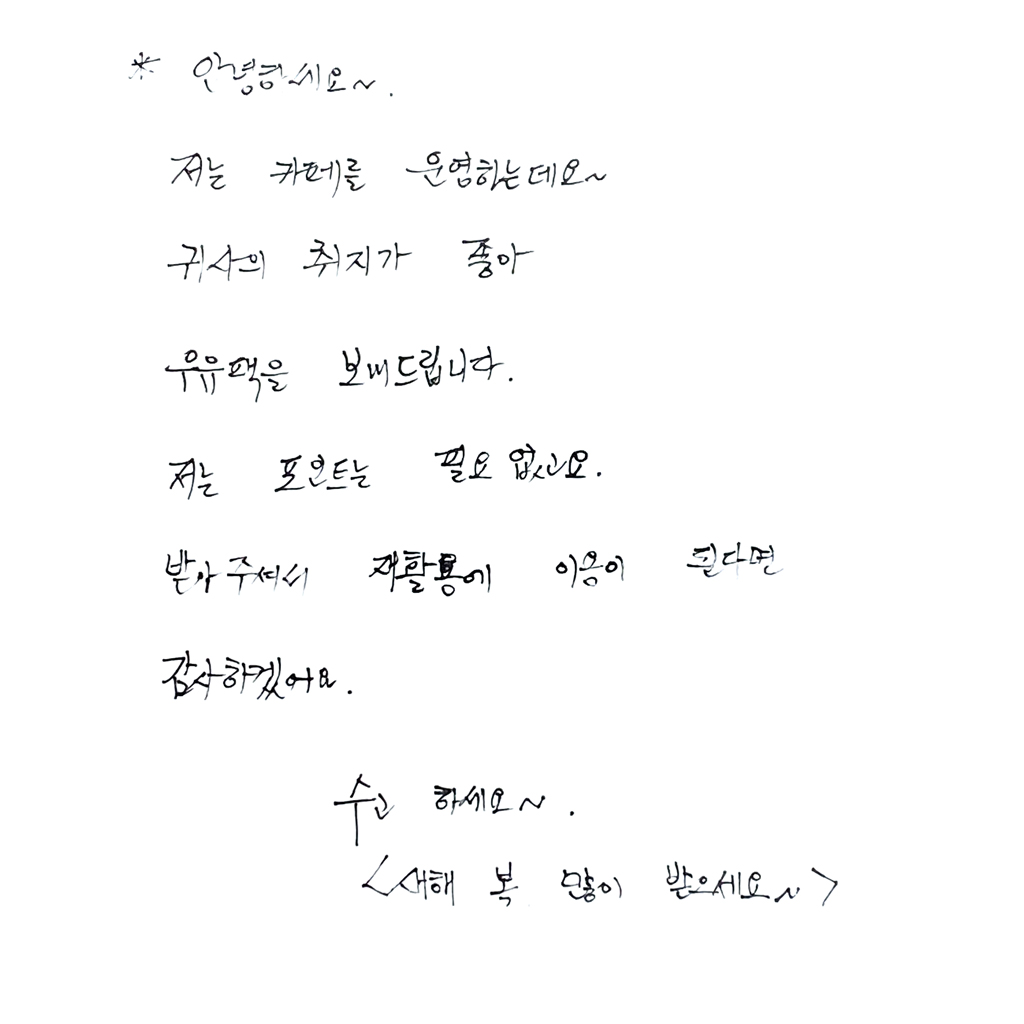 * 안녕하세요~.
저는 카페를 운영하는데요~
귀사의 취지가 좋아
우유팩을 보내드립니다.
저는 포인트는 필요 없고요.
받아 주셔서 재활용에 이용이 된다면
감사하겠어요.
수고 하세요~.
<새해 복 많이 받으세요~>